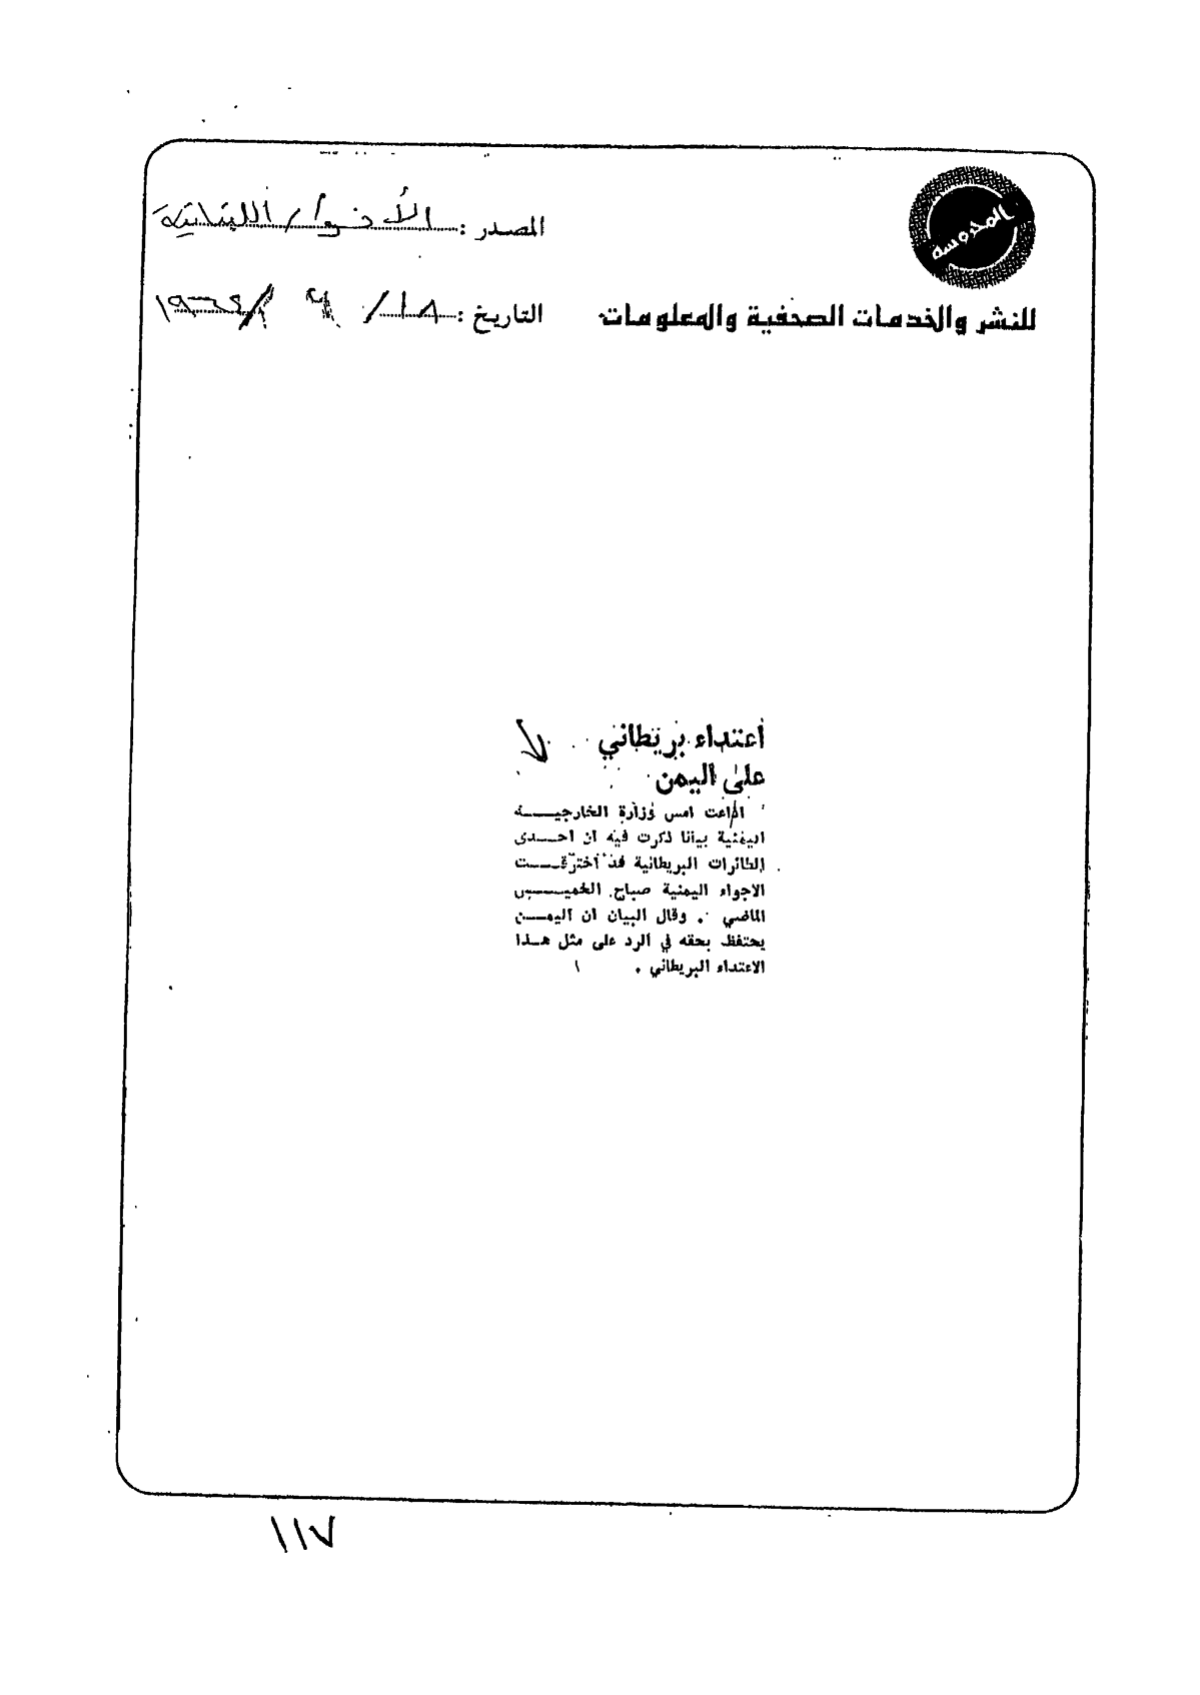 المحروسة
المصدر : الأنوار اللبنانية
للنشر والخدمات الصحفية والمعلومات
التاريخ : ١٨ /
اعتداء بريطاني
على اليمن
اذاعت امس وزارة الخارجيـــة
اليمنية بيانا ذكرت فيه ان احــدى
الطائرات البريطانية قد اخترقـــت
الاجواء اليمنية صباح الخميـــس
الماضي . وقال البيان ان اليمــن
يحتفظ بحقه في الرد على مثل هــذا
الاعتداء البريطاني .
١١٧